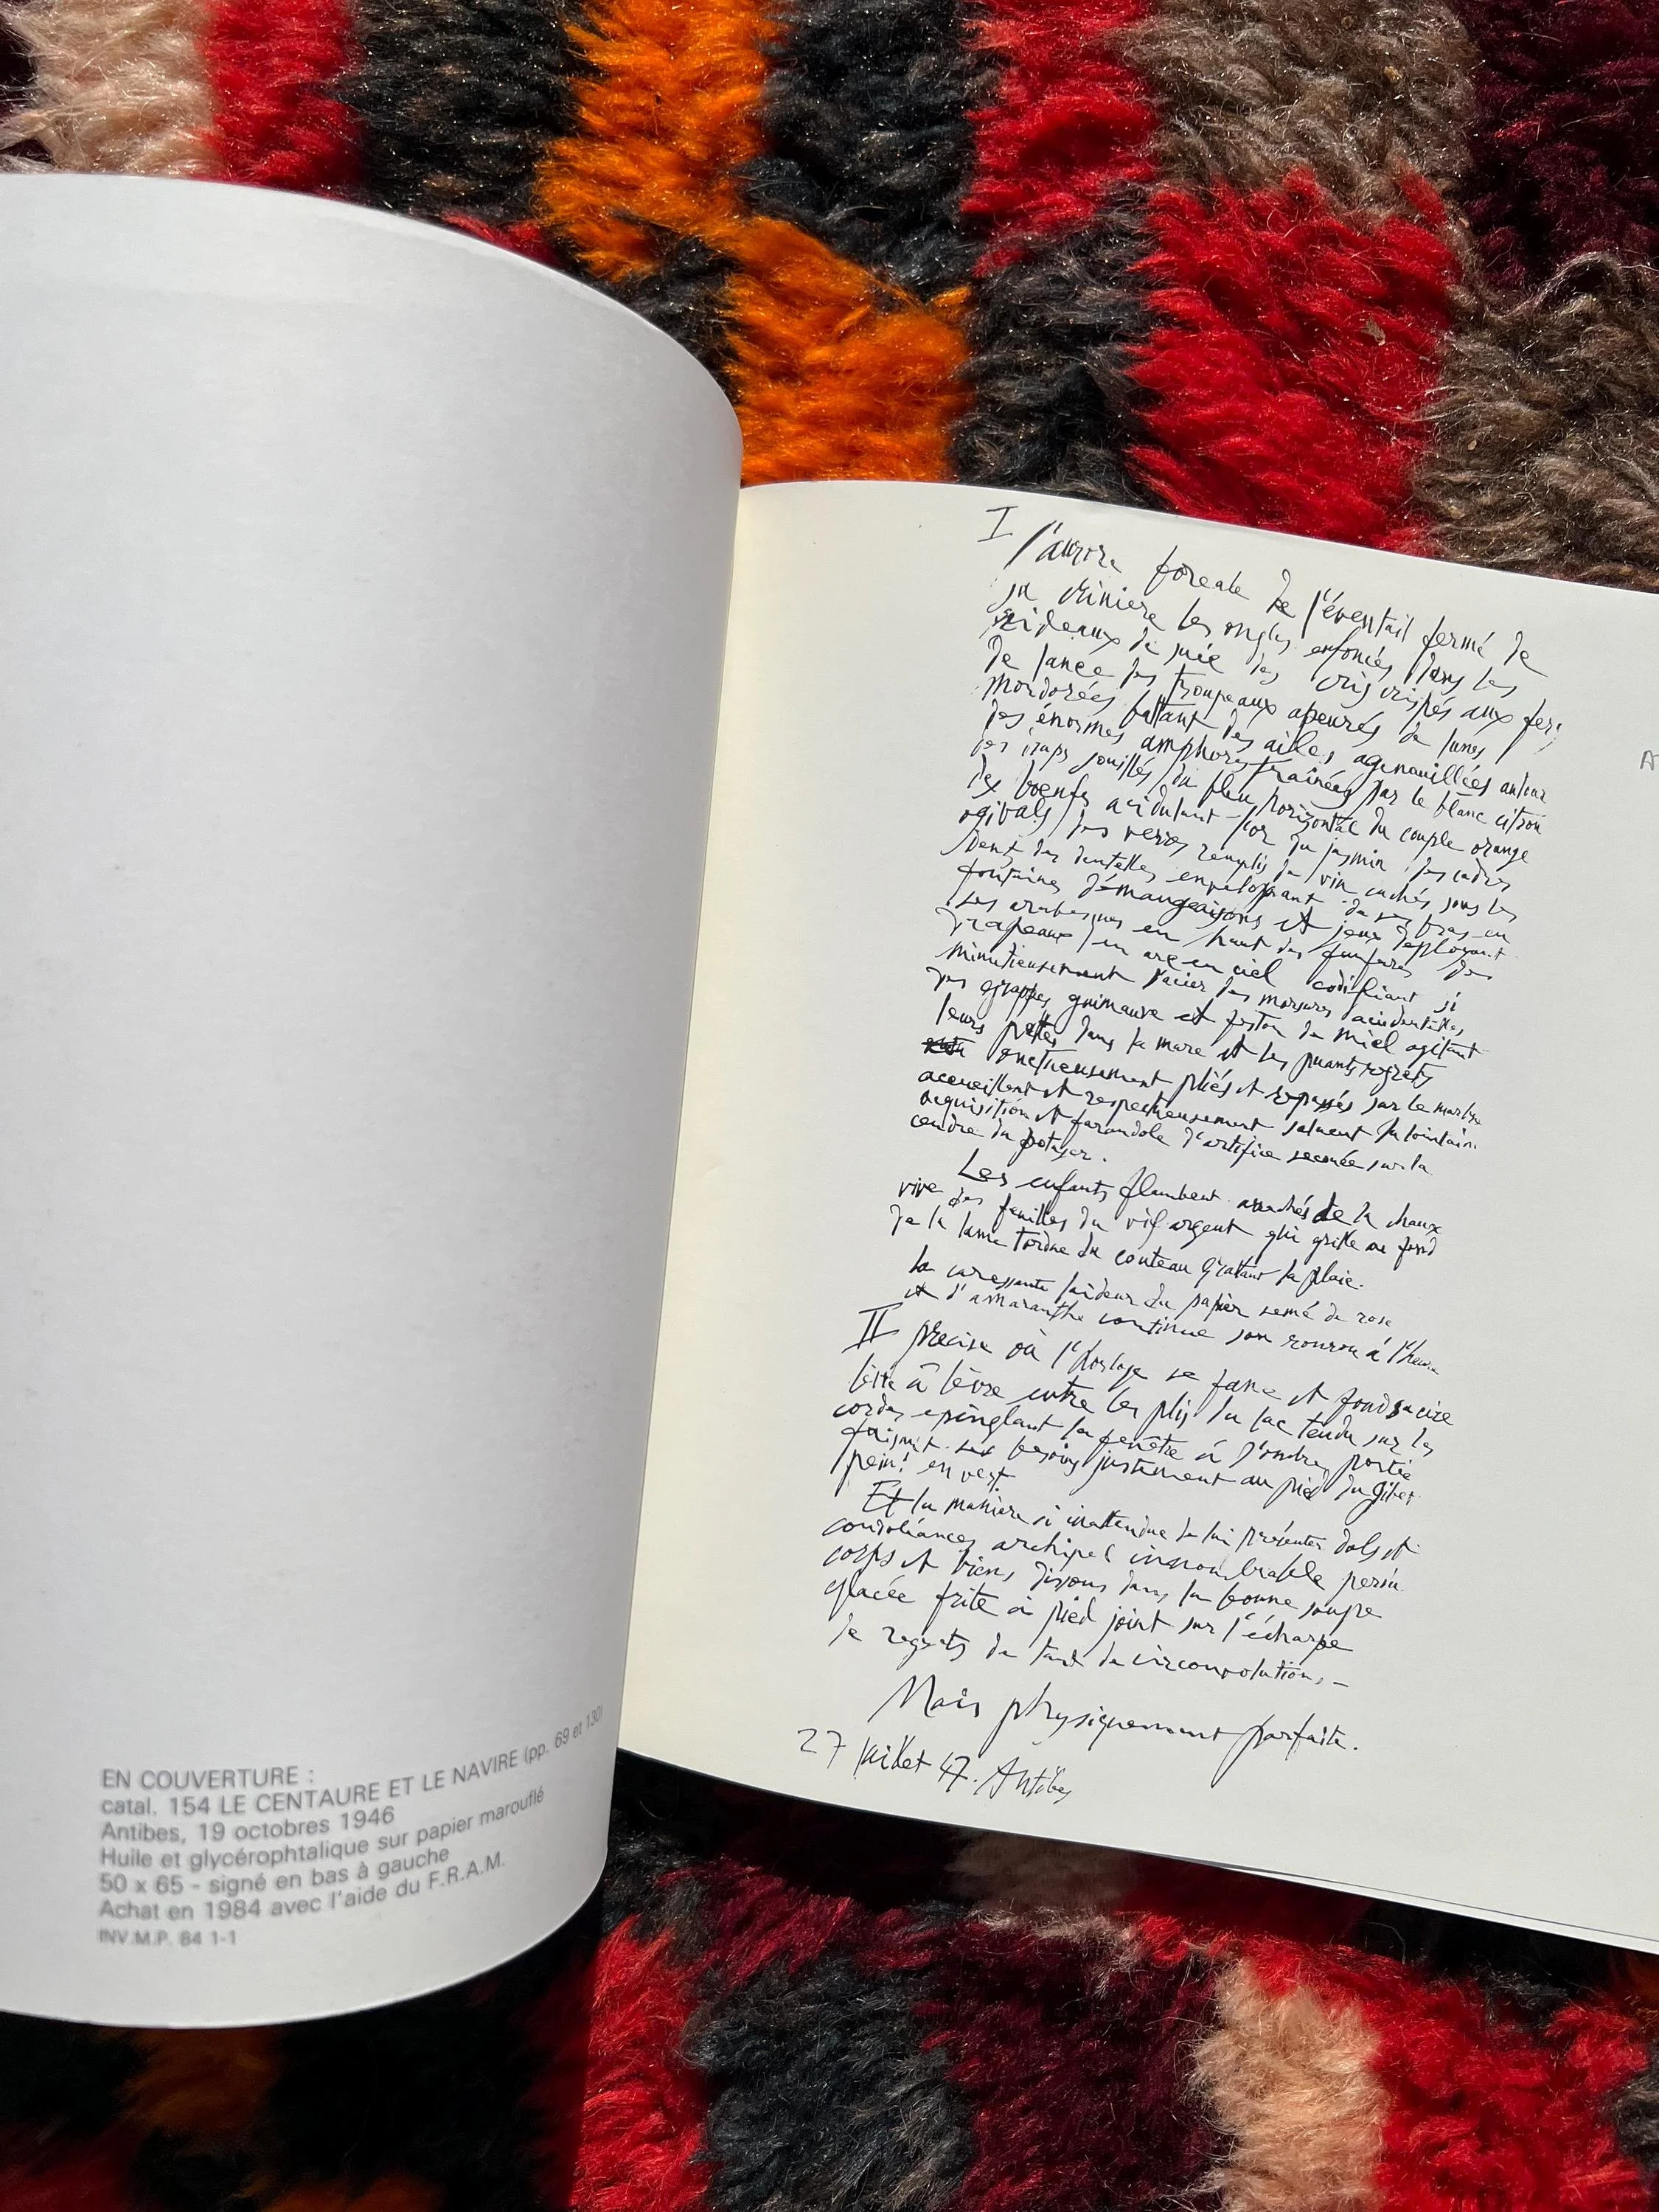 EN COUVERTURE :
catal. 154 LE CENTAURE ET LE NAVIRE (pp. 69 et 130)
Antibes, 19 octobres 1946
Huile et glycérophtalique sur papier marouflé
50 x 65 - signé en bas à gauche
Achat en 1984 avec l'aide du F.R.A.M.
INV.M.P. 84 1-1
I l'aurore de l'éventail fermé de
les ongles enfoncés dans les
rideaux de des cris crispés aux
de lance des troupeaux apeurés de lunes
mordorées battant des ailes agenouillées autour
des énormes amphores traînées par le blanc citron
des souillés du bleu horizontal du couple orange
des boeufs acidulant l'or du jasmin des
ogivals des verres remplis de vin cachés sous les
dent des dentelles enveloppant de ses bras en
fontaines démangeaisons et jeux déployant
ses arabesques en haut des fanfares des
drapeaux en arc en ciel codifiant si
minutieusement l'acier des morsures accidentelles
des grappes guimauve et de miel agitant
leurs pattes dans la mare et les puants regrets
onctueusement pliés et repassés sur le marbre
accueillent et respectueusement saluent la lointaine
acquisition et farandole d'artifice secouée sur la
cendre du potager.
Les enfants flambent arrachés de la chaux
vive des familles du vif argent qui grille au fond
de la lame tordue du couteau grattant la plaie.
La caressante laideur du papier semé de rose
et d'amaranthe continue son ronron à l'heure
II précise où l'horloge se fane et fond sa cire
lèvre à lèvre entre les plis du lac tendu sur les
cordes epinglant la fenêtre à l'ombre portée
faisant ses besoins justement au pied du gibet
peint en vert.
Et la manière si inattendue de lui présenter dols et
condoléances archipel innombrable perdu
corps et biens disons dans la bonne soupe
glacée frite à pied joint sur l'écharpe
de regrets de tant de circonvolutions -
Mais physiquement parfaite.
27 juillet 47. Antibes
A